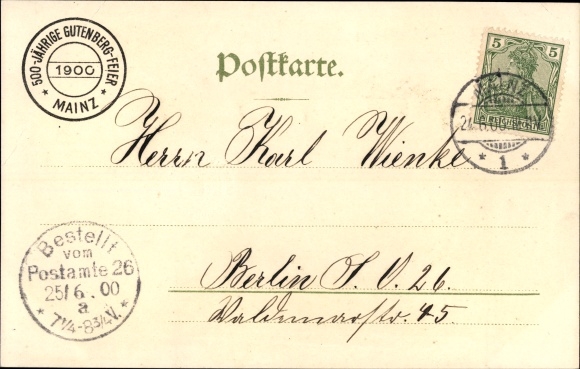 500-JÄHRIGE GUTENBERG-FEIER
1900
* MAINZ *
Postkarte.
5 5
REICHSPOST
MAINZ
* 1 *
Herrn Karl Wienke
Bestellt
vom
Postamte 26
25/6.00
a
* 7¼-8¾V. *
Berlin S. O. 26.
Waldemarstr. 45.